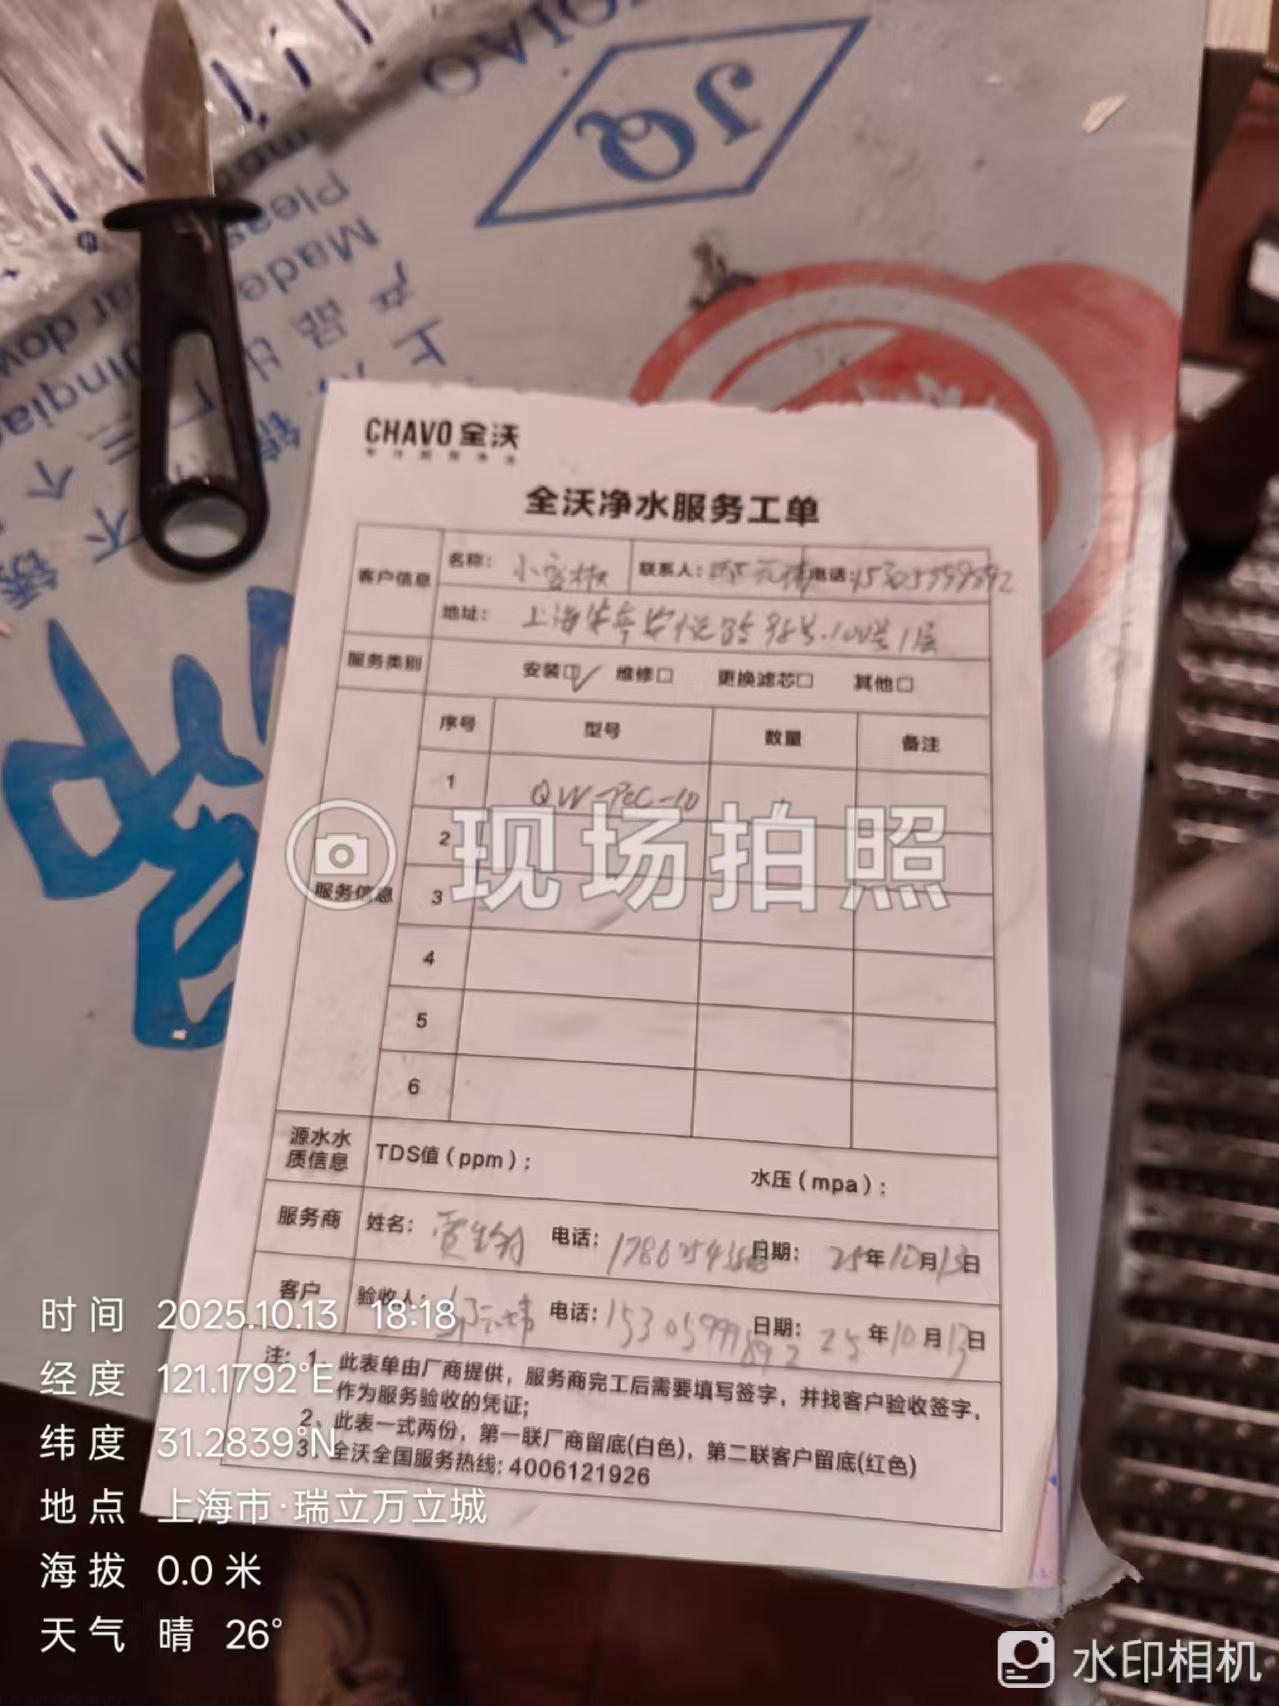 JQ
CHAVO 全沃
专注厨房净水
全沃净水服务工单
客户信息 名称： 联系人： 电话：15305999892
地址：上海 安悦路 1层
服务类别 安装☑ 维修□ 更换滤芯□ 其他□
服务信息 序号 型号 数量 备注
1 1
2
3
4
5
6
源水水质信息 TDS值（ppm）： 水压（mpa）：
服务商 姓名： 电话： 日期：25年10月13日
客户 验收人： 电话：15305999892 日期：25年10月13日
注：1、此表单由厂商提供，服务商完工后需要填写签字，并找客户验收签字，
作为服务验收的凭证；
2、此表一式两份，第一联厂商留底(白色)，第二联客户留底(红色)
3、全沃全国服务热线：4006121926
现场拍照
时间 2025.10.13 18:18
经度 121.1792°E
纬度 31.2839°N
地点 上海市·瑞立万立城
海拔 0.0 米
天气 晴 26°
水印相机